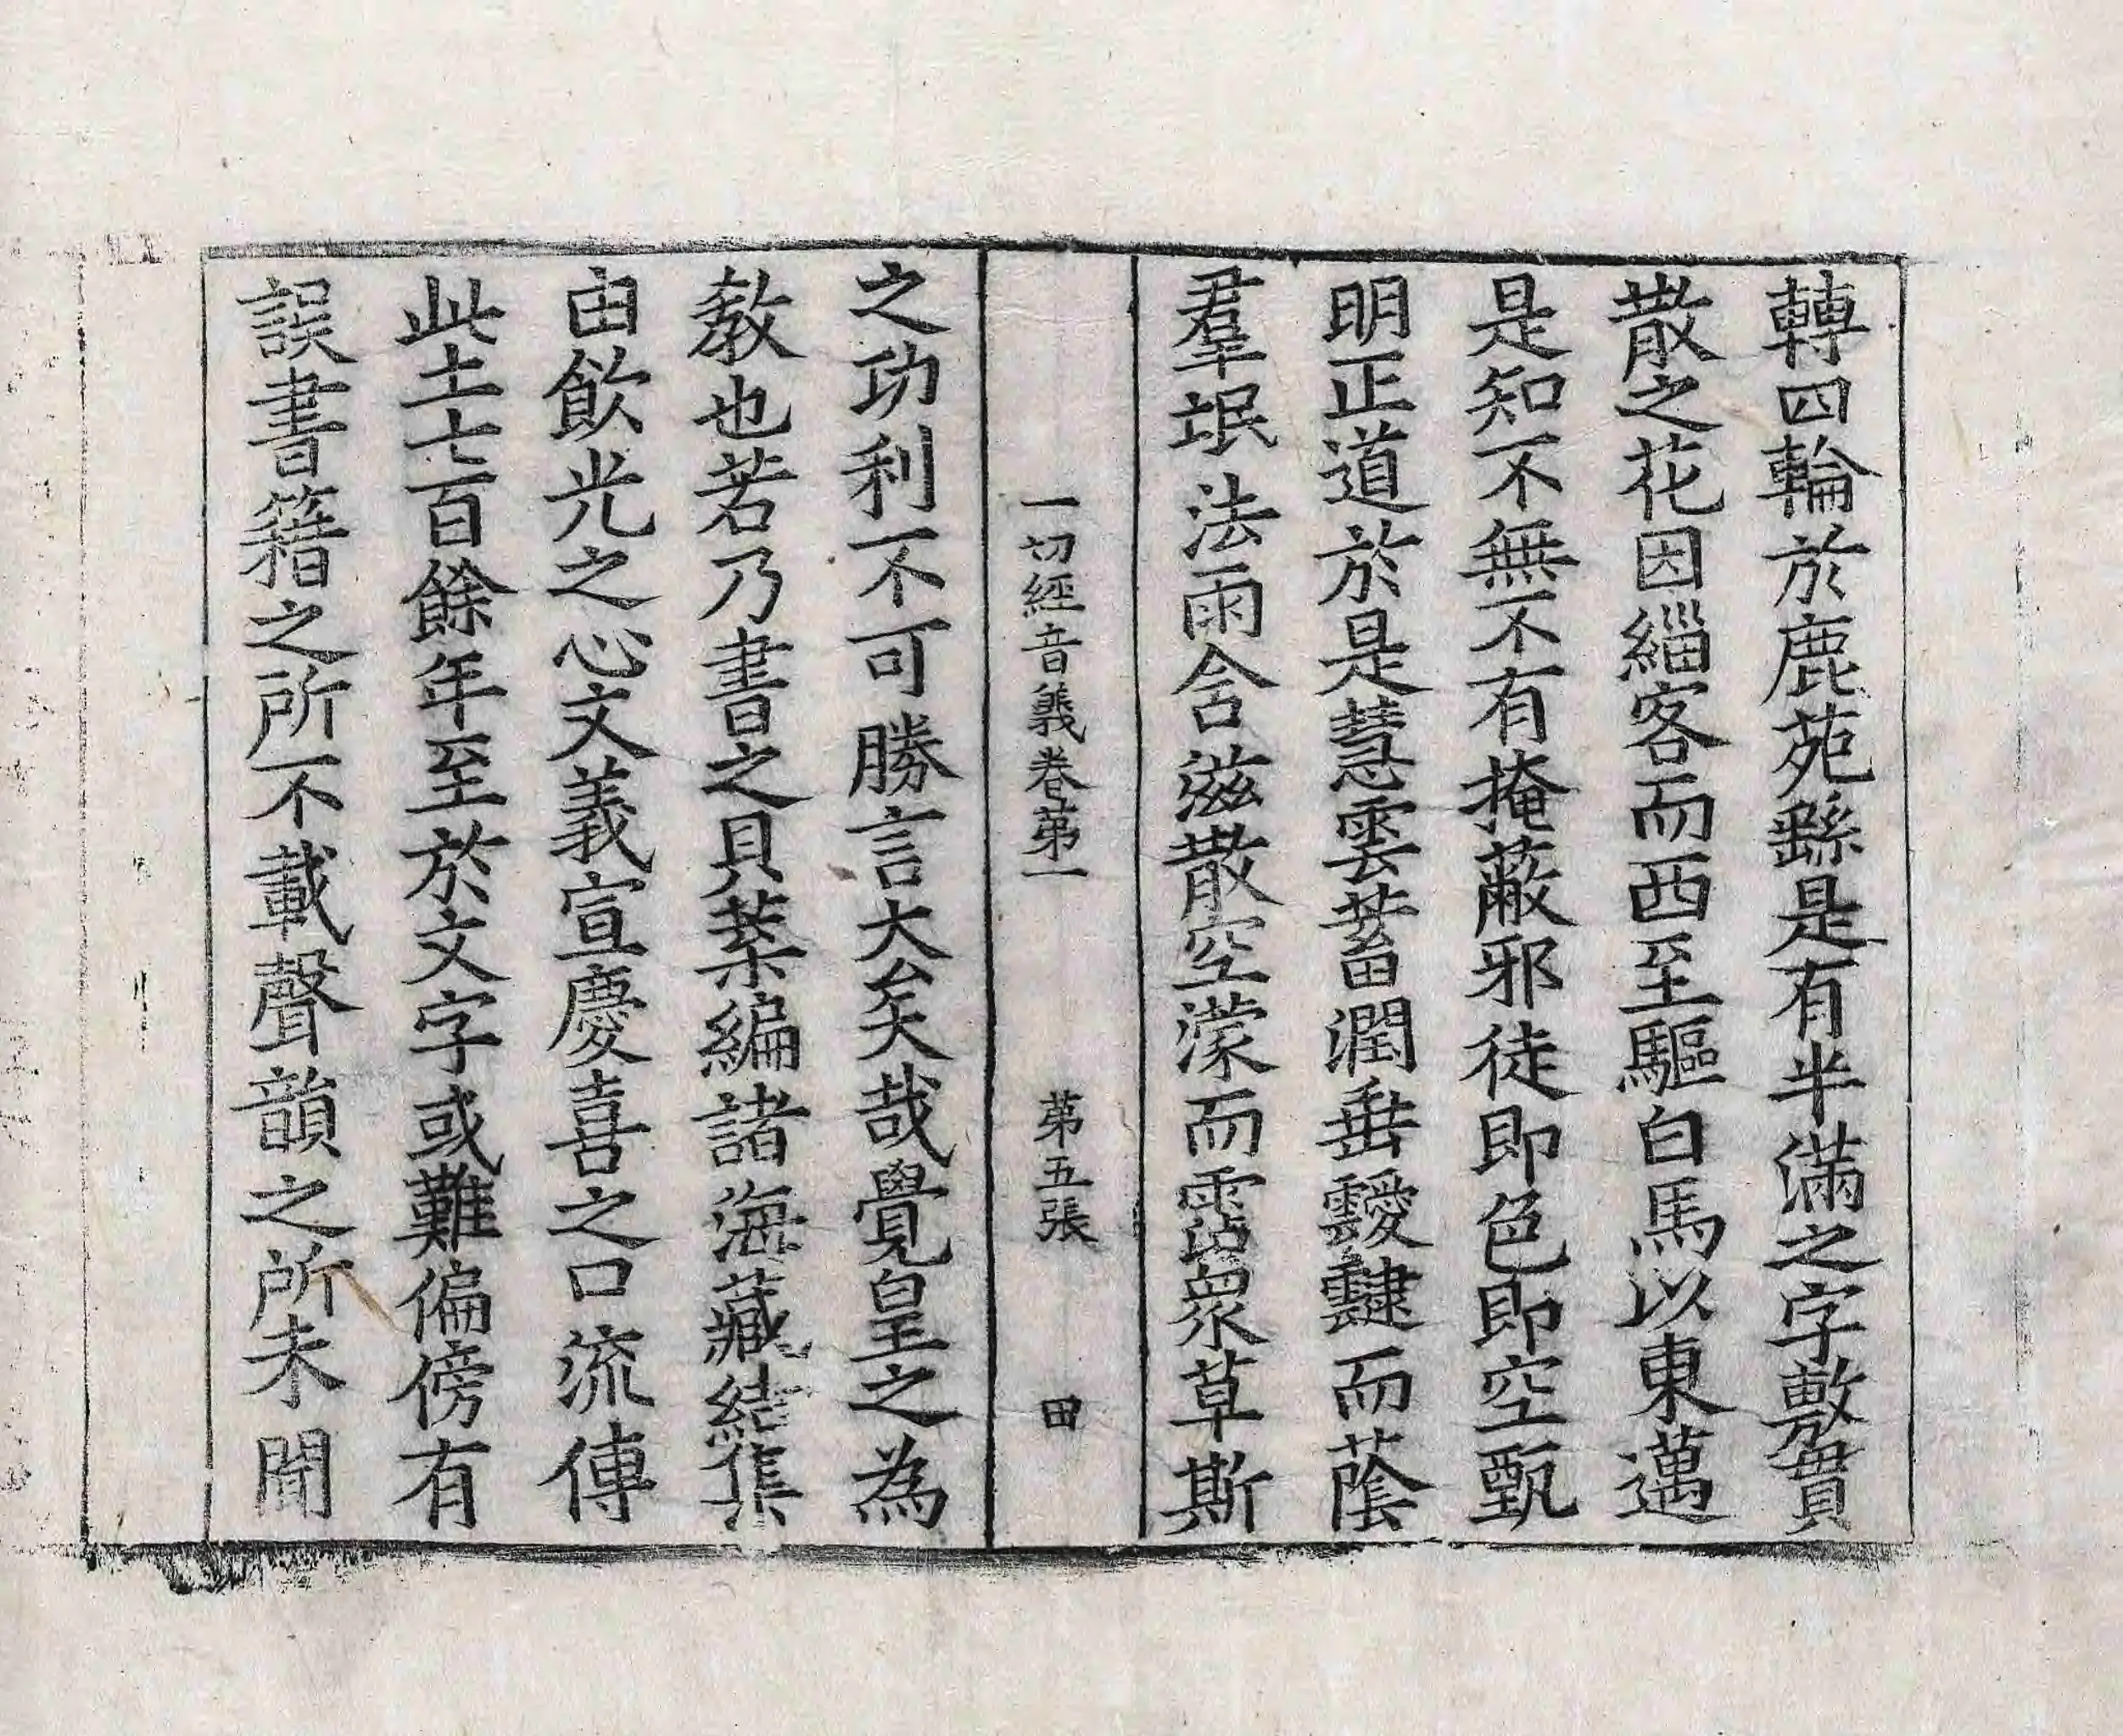 轉四輪於鹿苑繇是有半滿之字敷貫
散之花因緇客而西至驅白馬以東邁
是知不無不有掩蔽邪徒即色即空甄
明正道於是慧雲蓄潤垂靉靆而蔭
羣氓法雨含滋散空濛而霑衆草斯
一切經音義卷第一 第五張 田
之功利不可勝言大矣哉覺皇之為
教也若乃書之貝葉編諸海藏結集
由飲光之心文義宣慶喜之口流傳
此土七百餘年至於文字或難偏傍有
誤書籍之所不載聲韻之所未聞